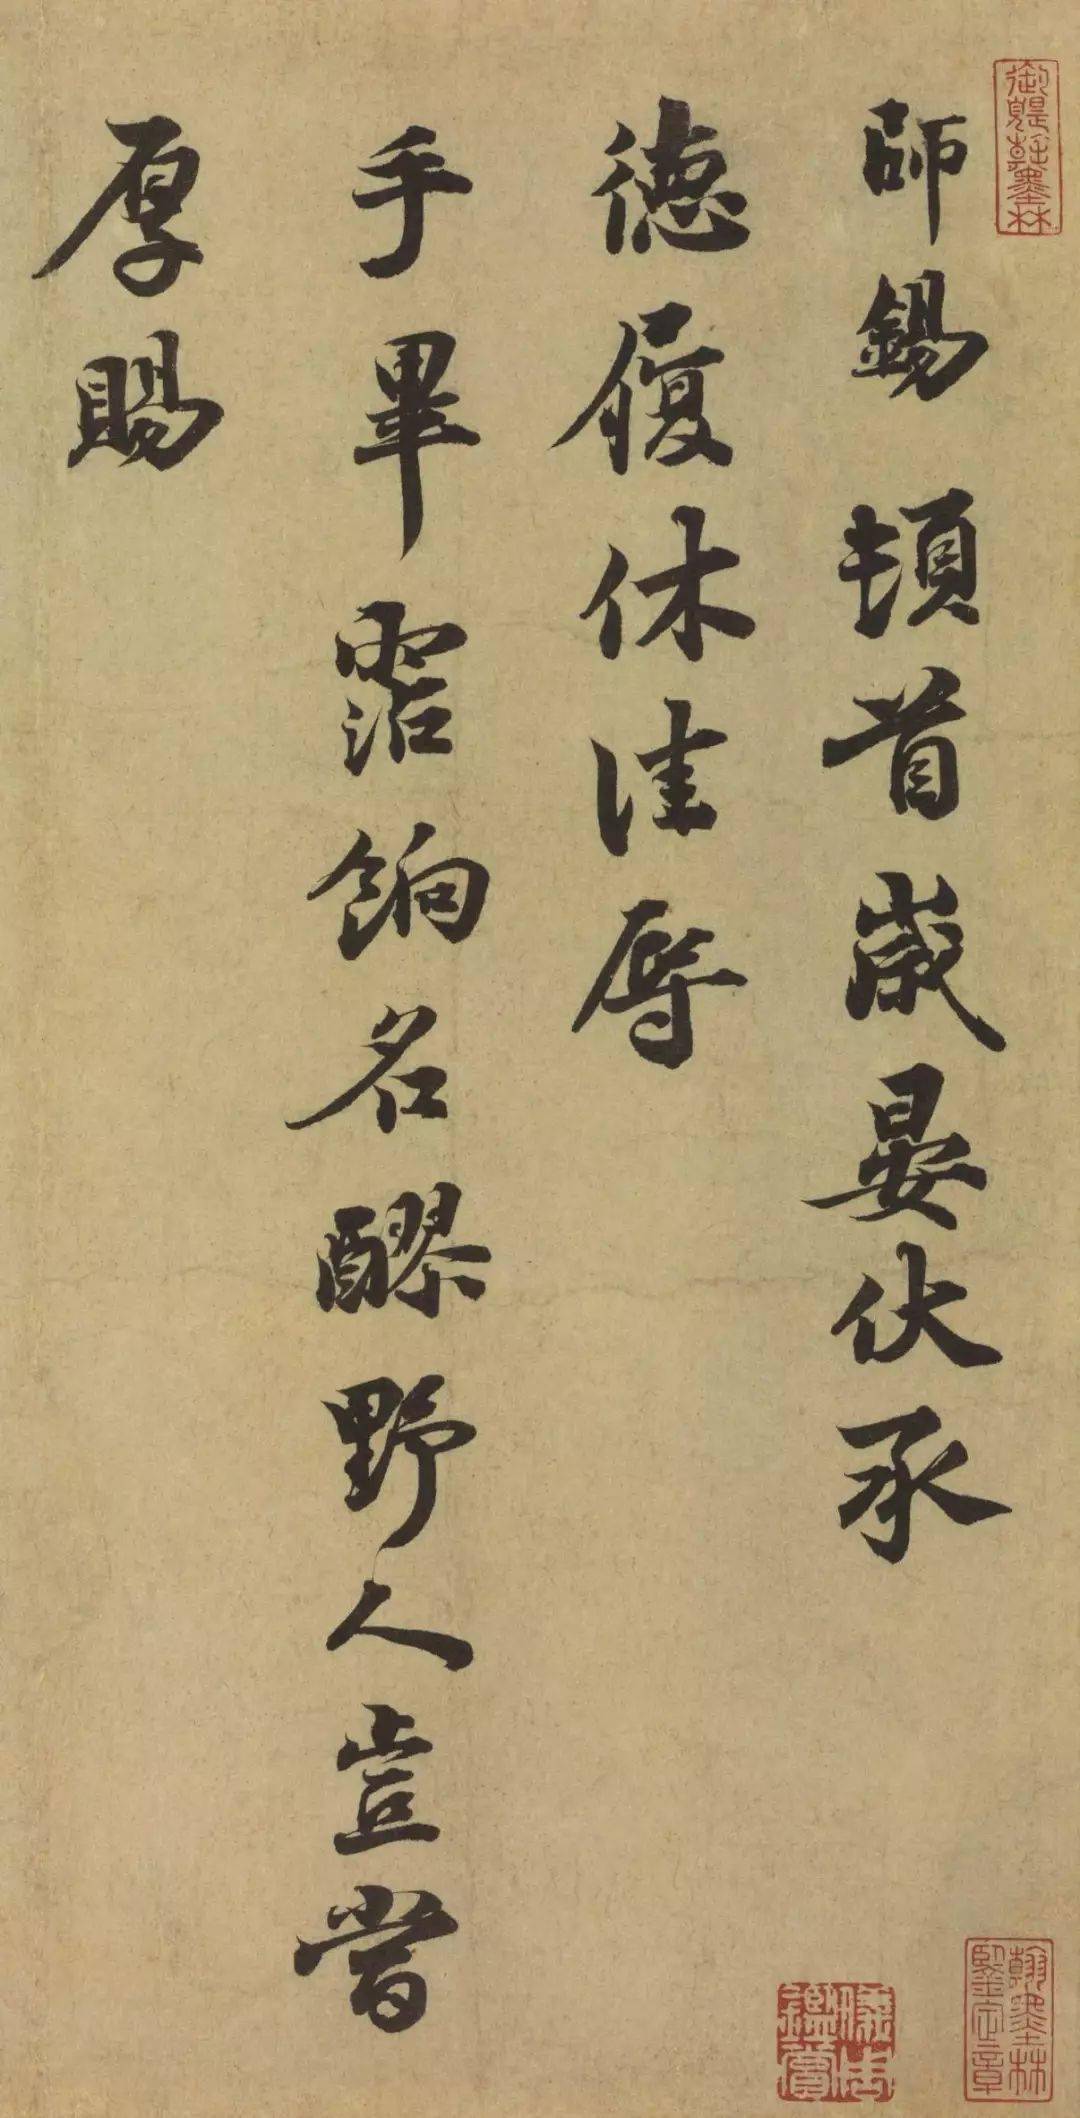 御題翰墨林
師錫頓首歲晏伏承
德履休佳辱
手畢霑餉名醪野人豈當
厚賜
翰墨林鑒定章
儀周鑑賞